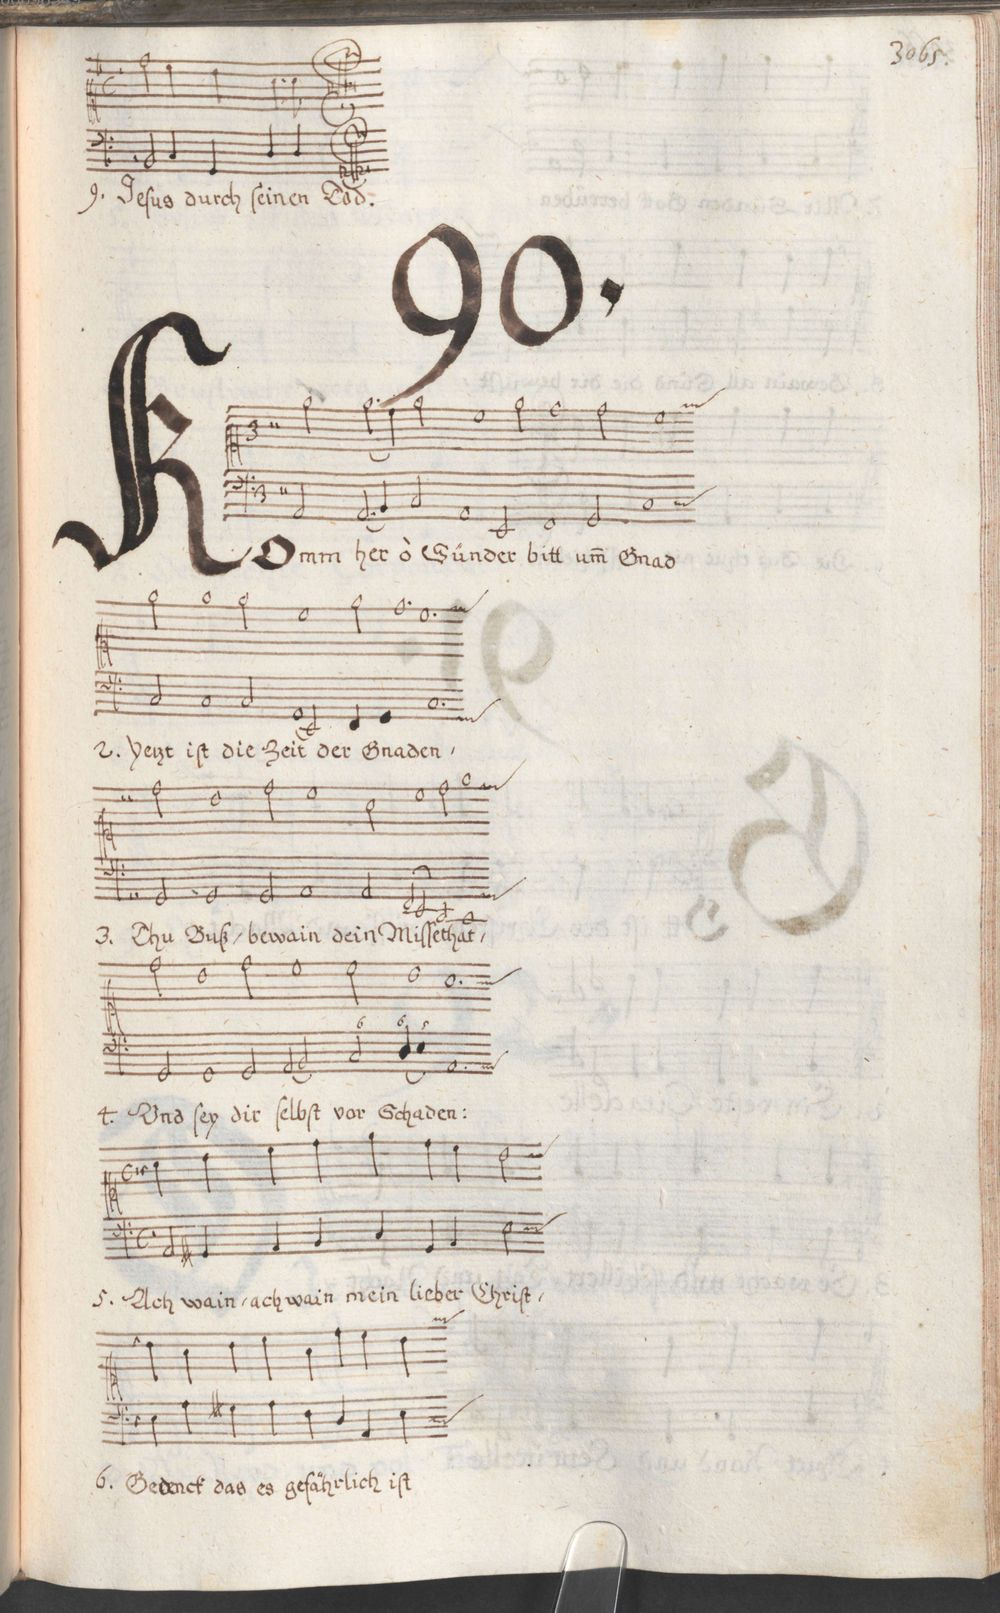 3065.
9. Jesus durch seinen Tod.
90.
Komm her ò Sünder bitt um̄ Gnad
2. Yetzt ist die Zeit der Gnaden,
3. Thu Buß, bewain dein Missethat,
6 6 5
4. Und sey dir selbst vor Schaden:
5. Ach wain, ach wain mein lieber Christ,
6. Gedenck das es gefährlich ist